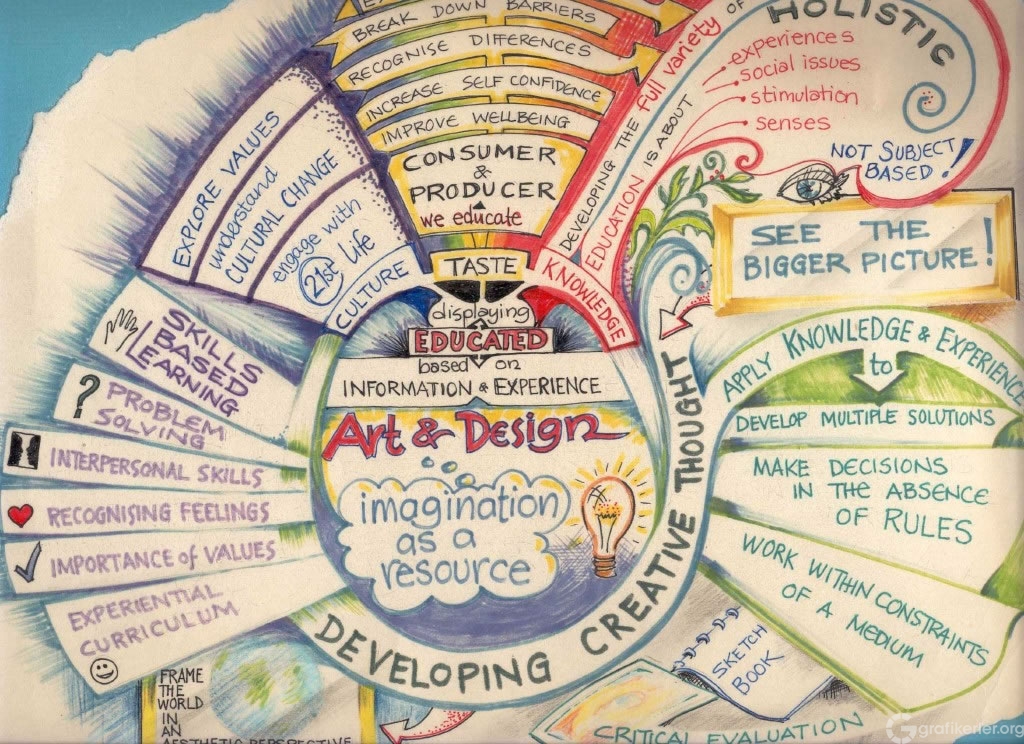 BREAK DOWN BARRIERS
RECOGNISE DIFFERENCES
INCREASE SELF CONFIDENCE
IMPROVE WELLBEING
CONSUMER
&
PRODUCER
we educate
TASTE
displaying
EDUCATED
based on
INFORMATION & EXPERIENCE
Art & Design
imagination
as a
resource
DEVELOPING CREATIVE THOUGHT
EXPLORE VALUES
understand
CULTURAL CHANGE
engage with
21st Life
CULTURE
KNOWLEDGE
DEVELOPING THE full variety OF
EDUCATION IS ABOUT
HOLISTIC
experiences
social issues
stimulation
senses
NOT SUBJECT
BASED!
SEE THE
BIGGER PICTURE!
SKILLS
BASED
LEARNING
?
PROBLEM
SOLVING
INTERPERSONAL SKILLS
RECOGNISING FEELINGS
IMPORTANCE of VALUES
EXPERIENTIAL
CURRICULUM
APPLY KNOWLEDGE & EXPERIENCE
to
DEVELOP MULTIPLE SOLUTIONS
MAKE DECISIONS
IN THE ABSENCE
OF RULES
WORK WITHIN CONSTRAINTS
OF A MEDIUM
SKETCH
BOOK
CRITICAL EVALUATION
FRAME
THE
WORLD
IN
AN
AESTHETIC PERSPECTIVE
grafikerler.org